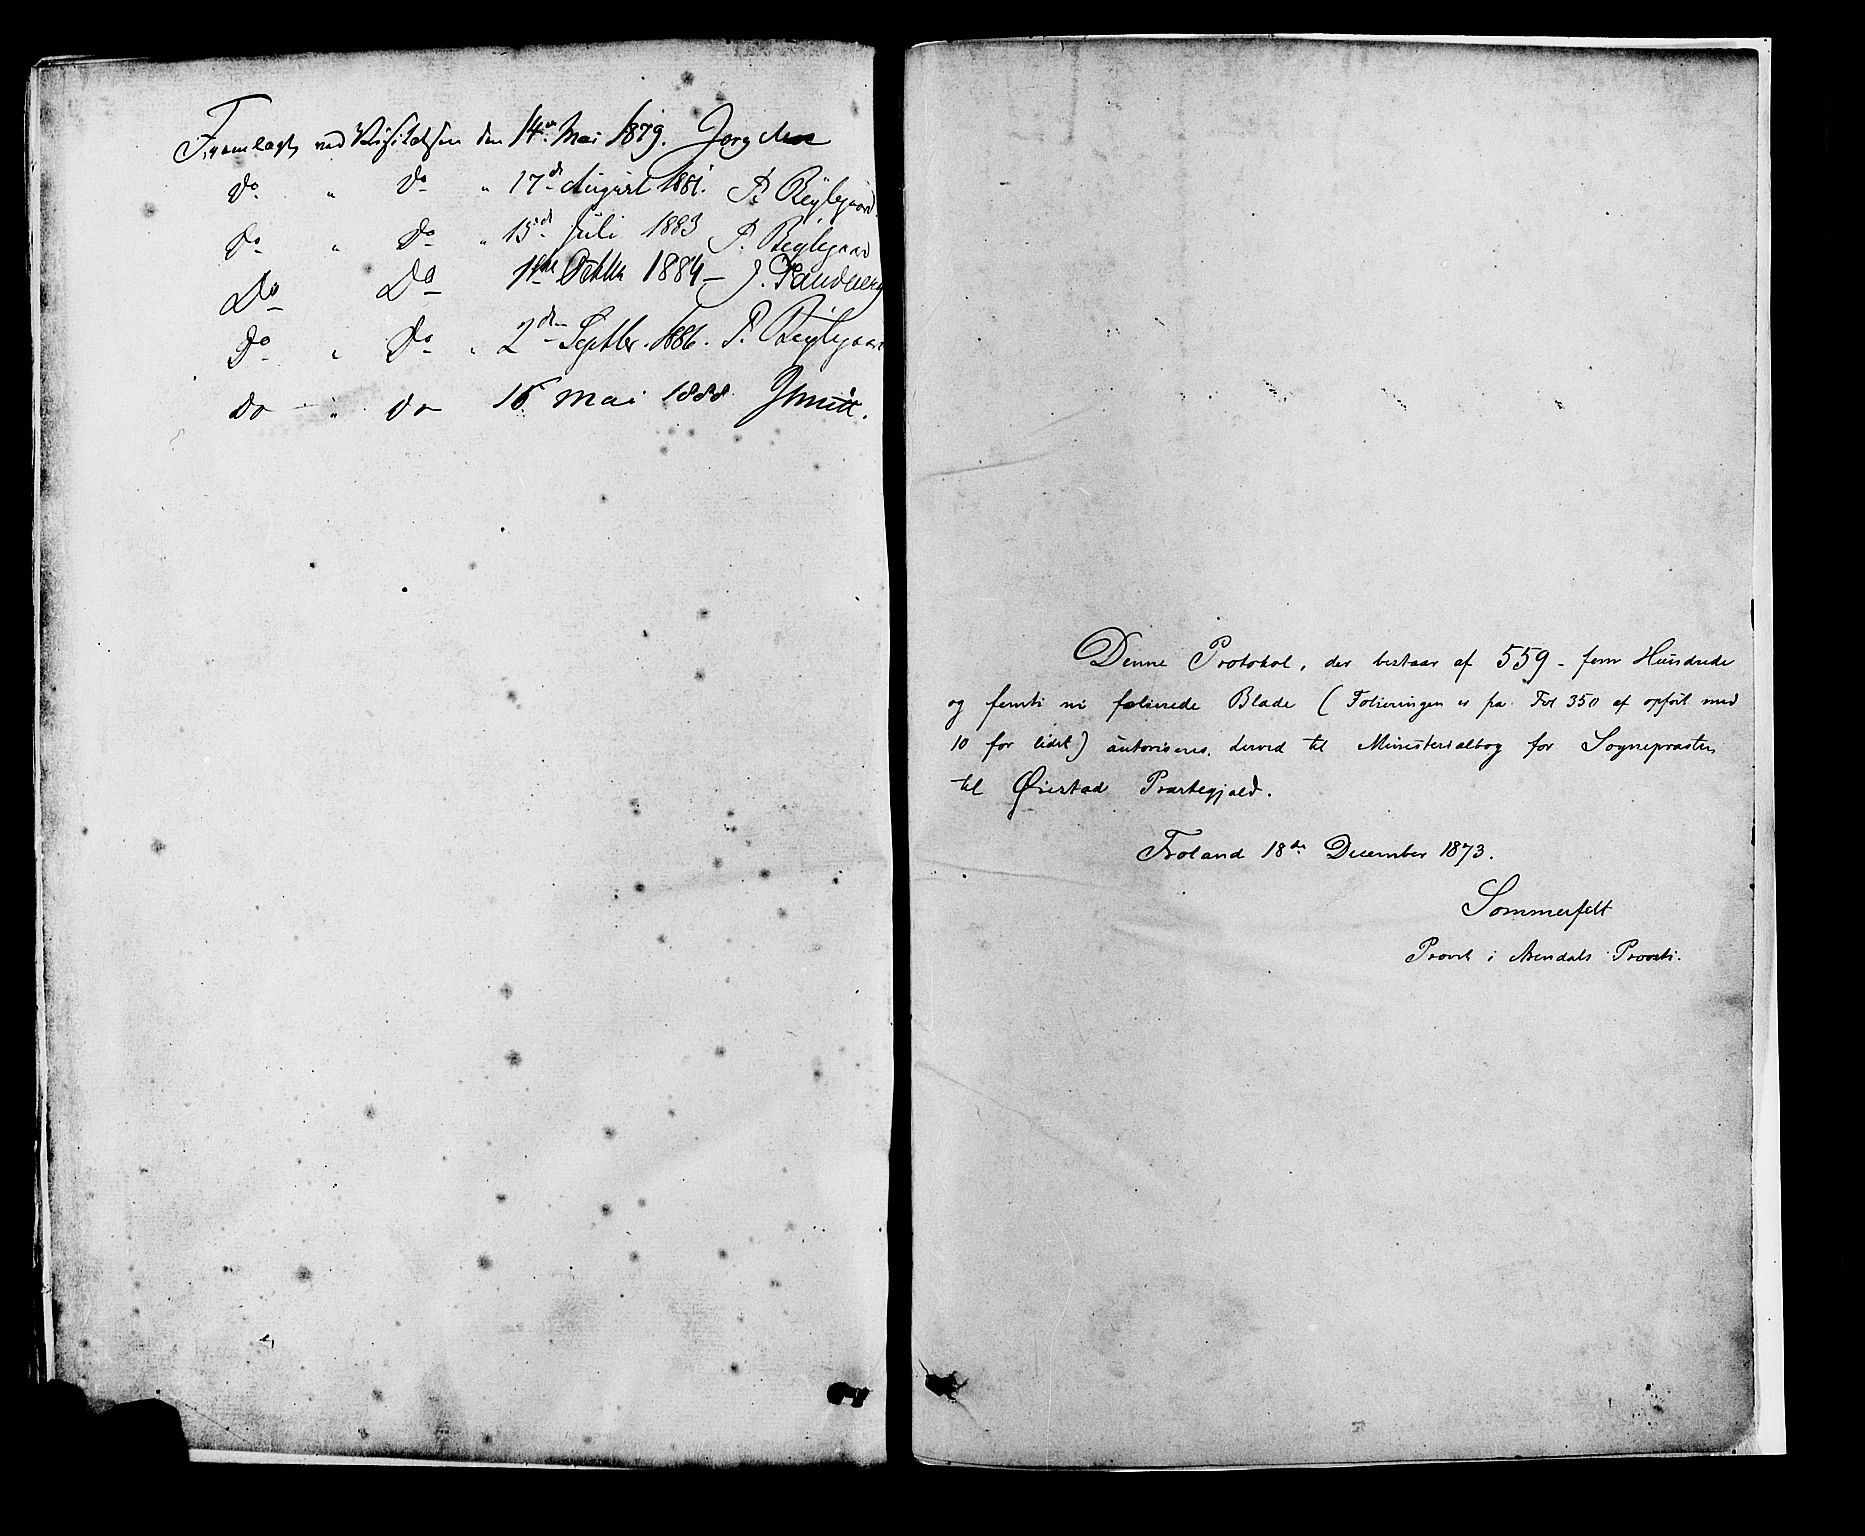 Fremlagt ved Visitatsen den 14de Mai 1879. Jørg Moe
Do " Do " 17de August 1881. P. Røyhgaard
Do " Do " 15de Juli 1883 P. Røyhgaard
Do Do 1ste Octbr 1884 - J. Sandberg
Do " Do " 2den Septbr. 1886. P. Røyhgaard
Do " Do 16 Mai 1888 Smitt.
Denne Protokol, der bestaar af 559 - fem Hundrede
og femti ni folierede Blade (Folieringen er fra Fol 350 af opført med
10 for lidet) autoriseres herved til Ministerialbog for Sognepræsten
til Øiestad Præstegjæld.
Froland 18de December 1873.
Sommerfelt
Provst i Arendals Provsti.